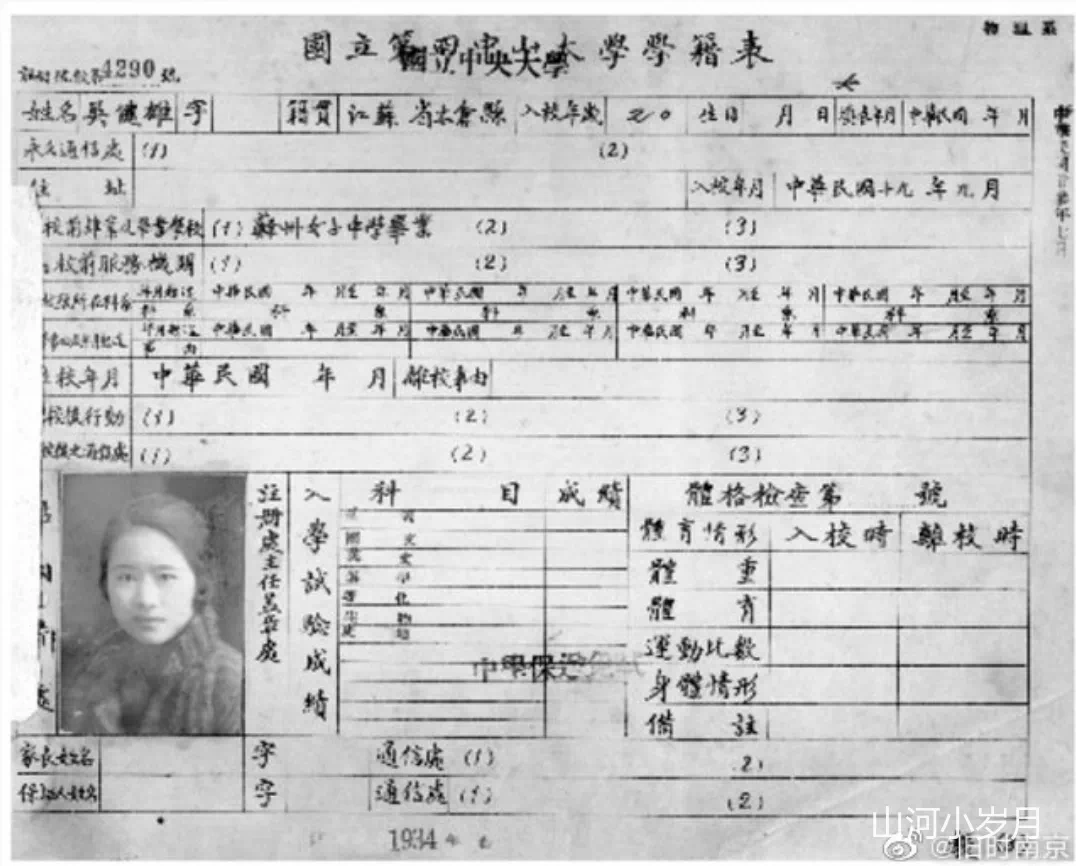 物理系
國立中央大學學籍表
第4290號
姓名 吳健雄 字 籍貫 江蘇省太倉縣 入校年歲 20 生日 月 日 填表年月 中華民國 年 月
永久通信處 (1) (2)
住 址 入校年月 中華民國十九年九月
校前雖業及畢業學校 (1) 蘇州女子中學畢業 (2) (3)
校前服務機關 (1) (2) (3)
年月起訖 中華民國 年 月至 年 月 中華民國 年 月至 年 月 中華民國 年 月至 年 月 中華民國 年 月至 年 月
科 系 科 系 科 系 科 系
年月起訖 中華民國 年 月至 年 月 中華民國 年 月至 年 月 中華民國 年 月至 年 月 中華民國 年 月至 年 月
校年月 中華民國 年 月 離校事由
校後行動 (1) (2) (3)
(1) (2) (3)
註冊處主任蓋章處
入學試驗成績
科 目 成績
體格檢查第 號
體育情形 入校時 離校時
體 重
體 育
運動比數
身體情形
備 註
中學保送免試
家長姓名 字 通信處 (1) (2)
保證人姓名 字 通信處 (1) (2)
1934
山河小岁月
@旧时南京